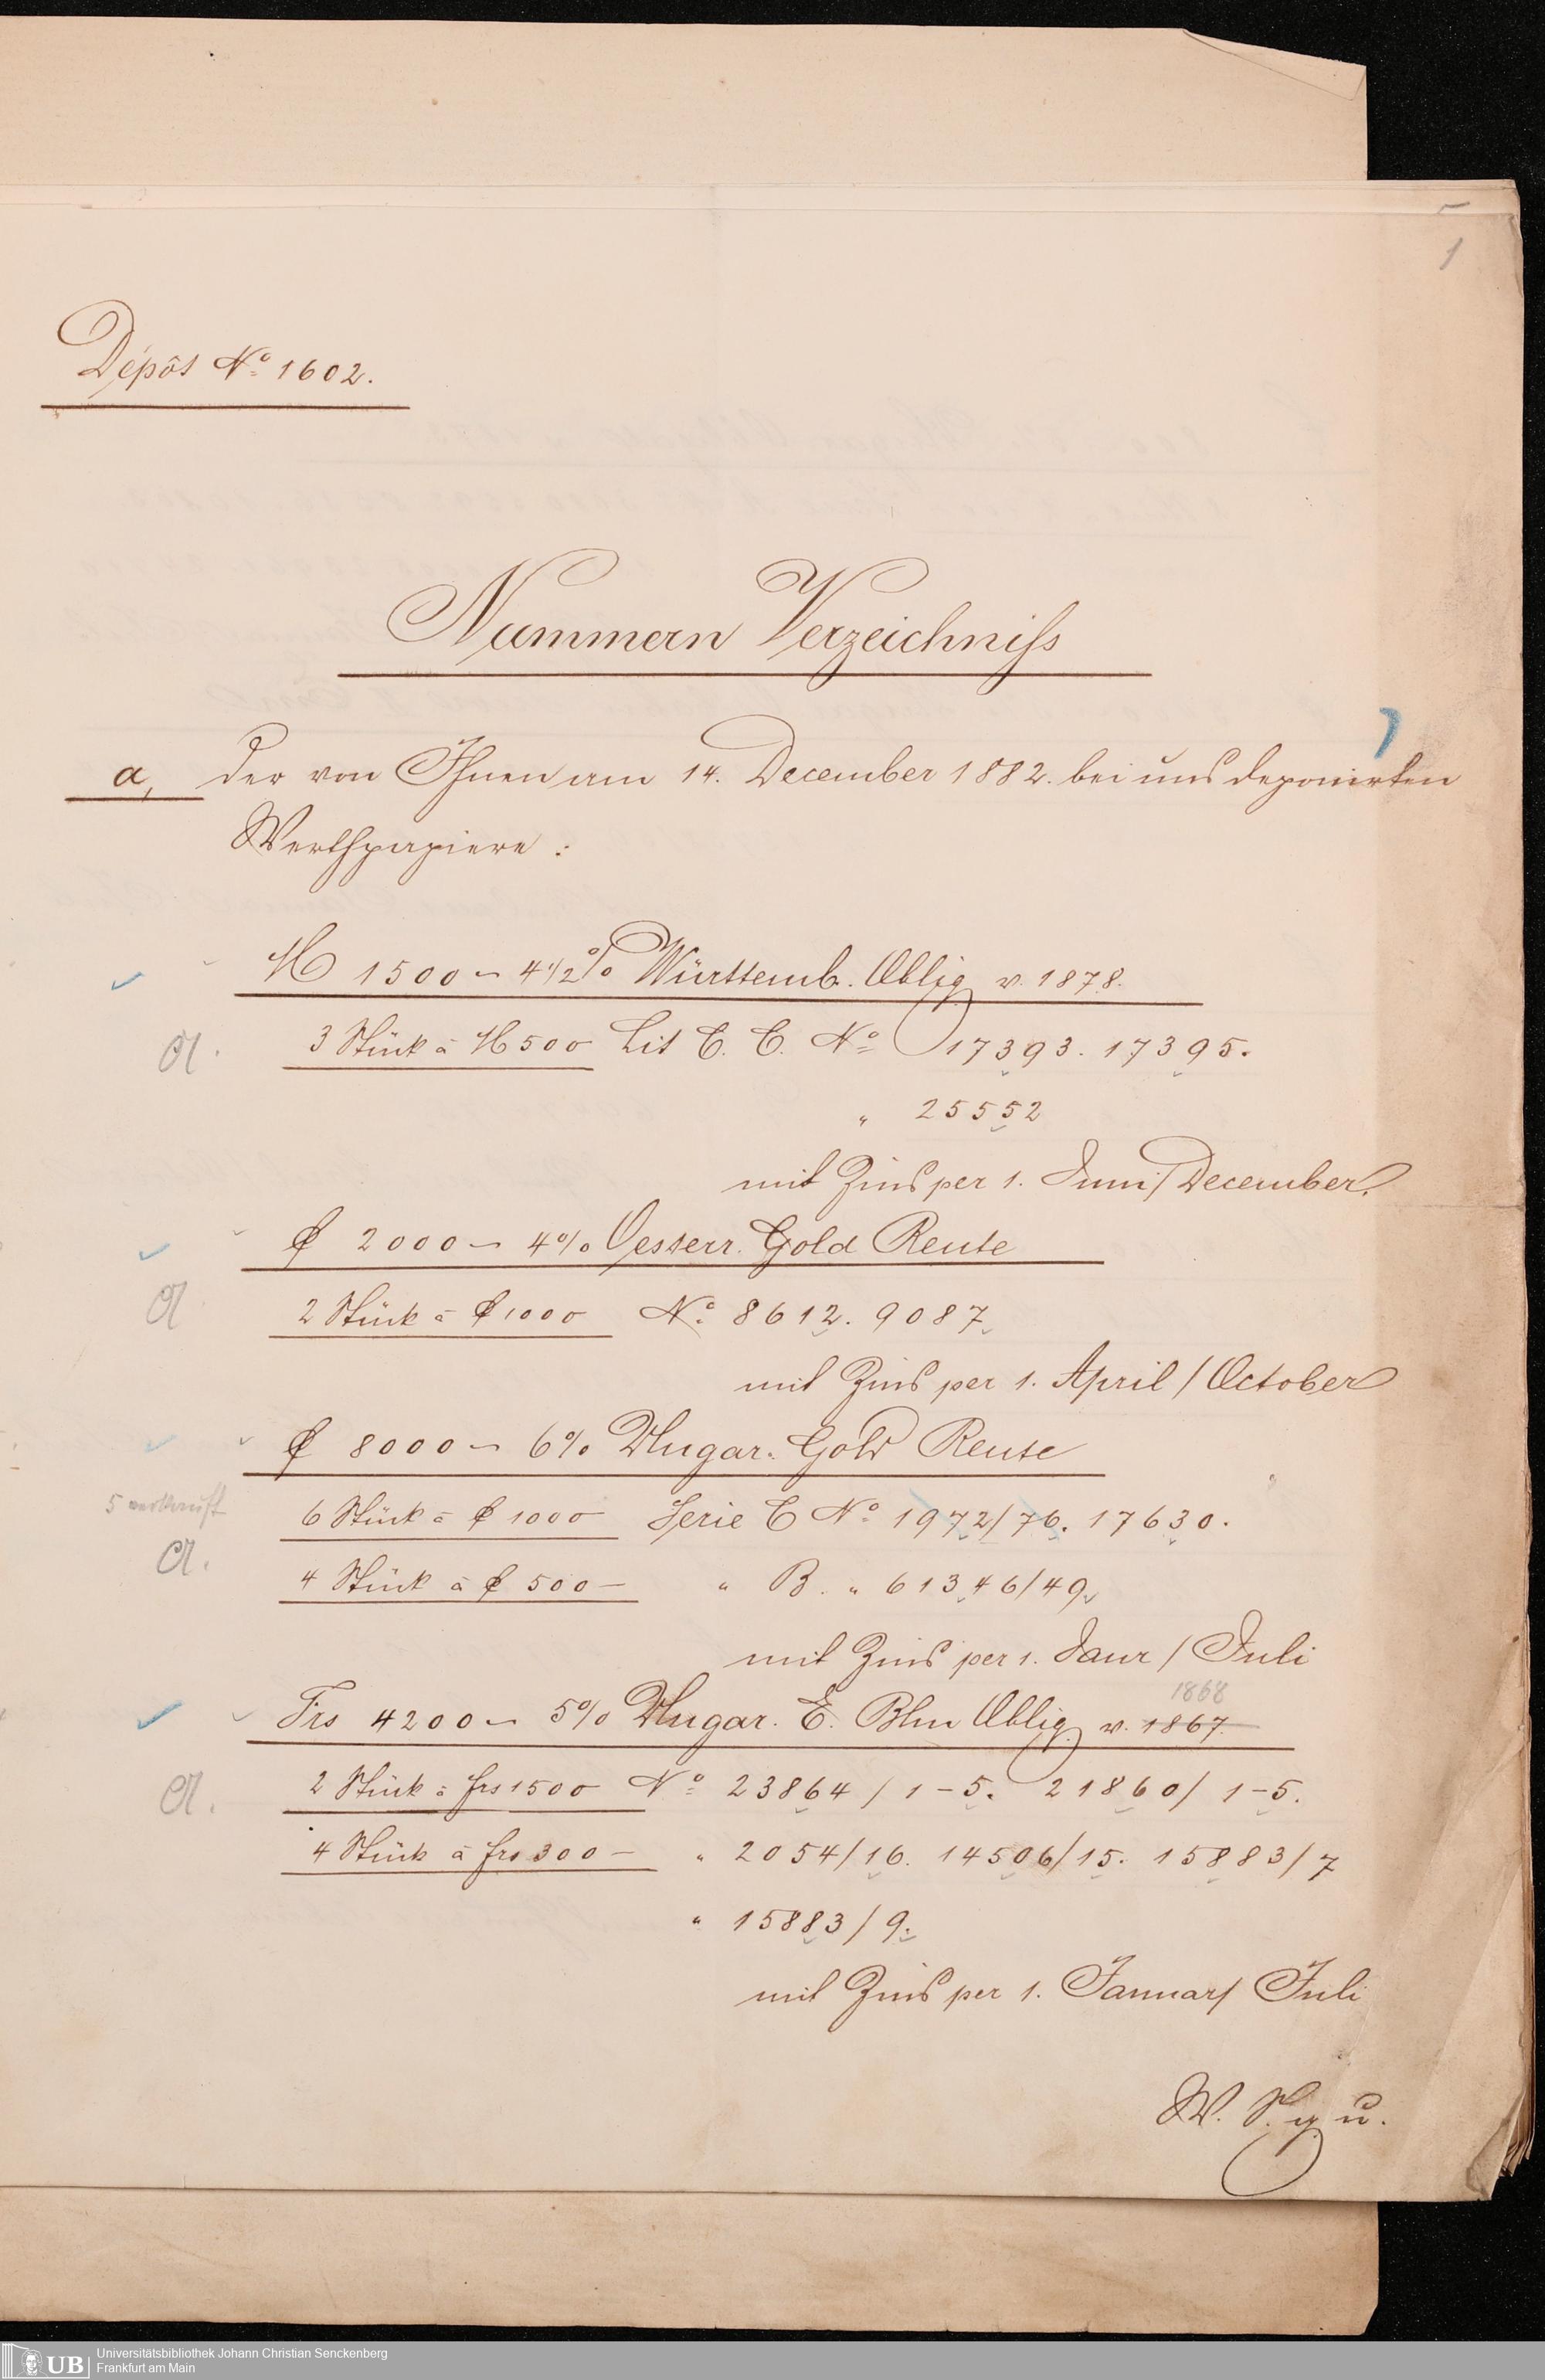 5
1
Dépôt No 1602.
Nummern Verzeichniss
a, der von Ihnen am 14. December 1882. bei uns deponirten
Werthpapiere:
M 1500 – 4 1/2 % Württemb. Oblig v. 1878.
3 Stück à M 500 Lit C. C. No 17393. 17395.
" 25552
mit Zins per 1. Juni/December.
fl 2000 – 4% Oesterr. Gold Rente
2 Stück à fl 1000 No 8612. 9087.
mit Zins per 1. April / October
fl 8000 – 6% Ungar. Gold Rente
5 verkauft
6 Stück à fl 1000 Serie C No 1972/76. 17630.
4 Stück à fl 500 – " B. " 61346/49.
mit Zins per 1. Janr / Juli
1868
Frs 4200 – 5% Ungar. E. Bhn Oblig v. 1867.
2 Stück à frs 1500 No 23864 / 1–5. 21860/ 1–5.
4 Stück à frs 300 – " 2054/16. 14506/15. 15883/7
" 15883/9.
mit Zins per 1. Januar/ Juli
W. S. g. u.
UB Universitätsbibliothek Johann Christian Senckenberg
Frankfurt am Main